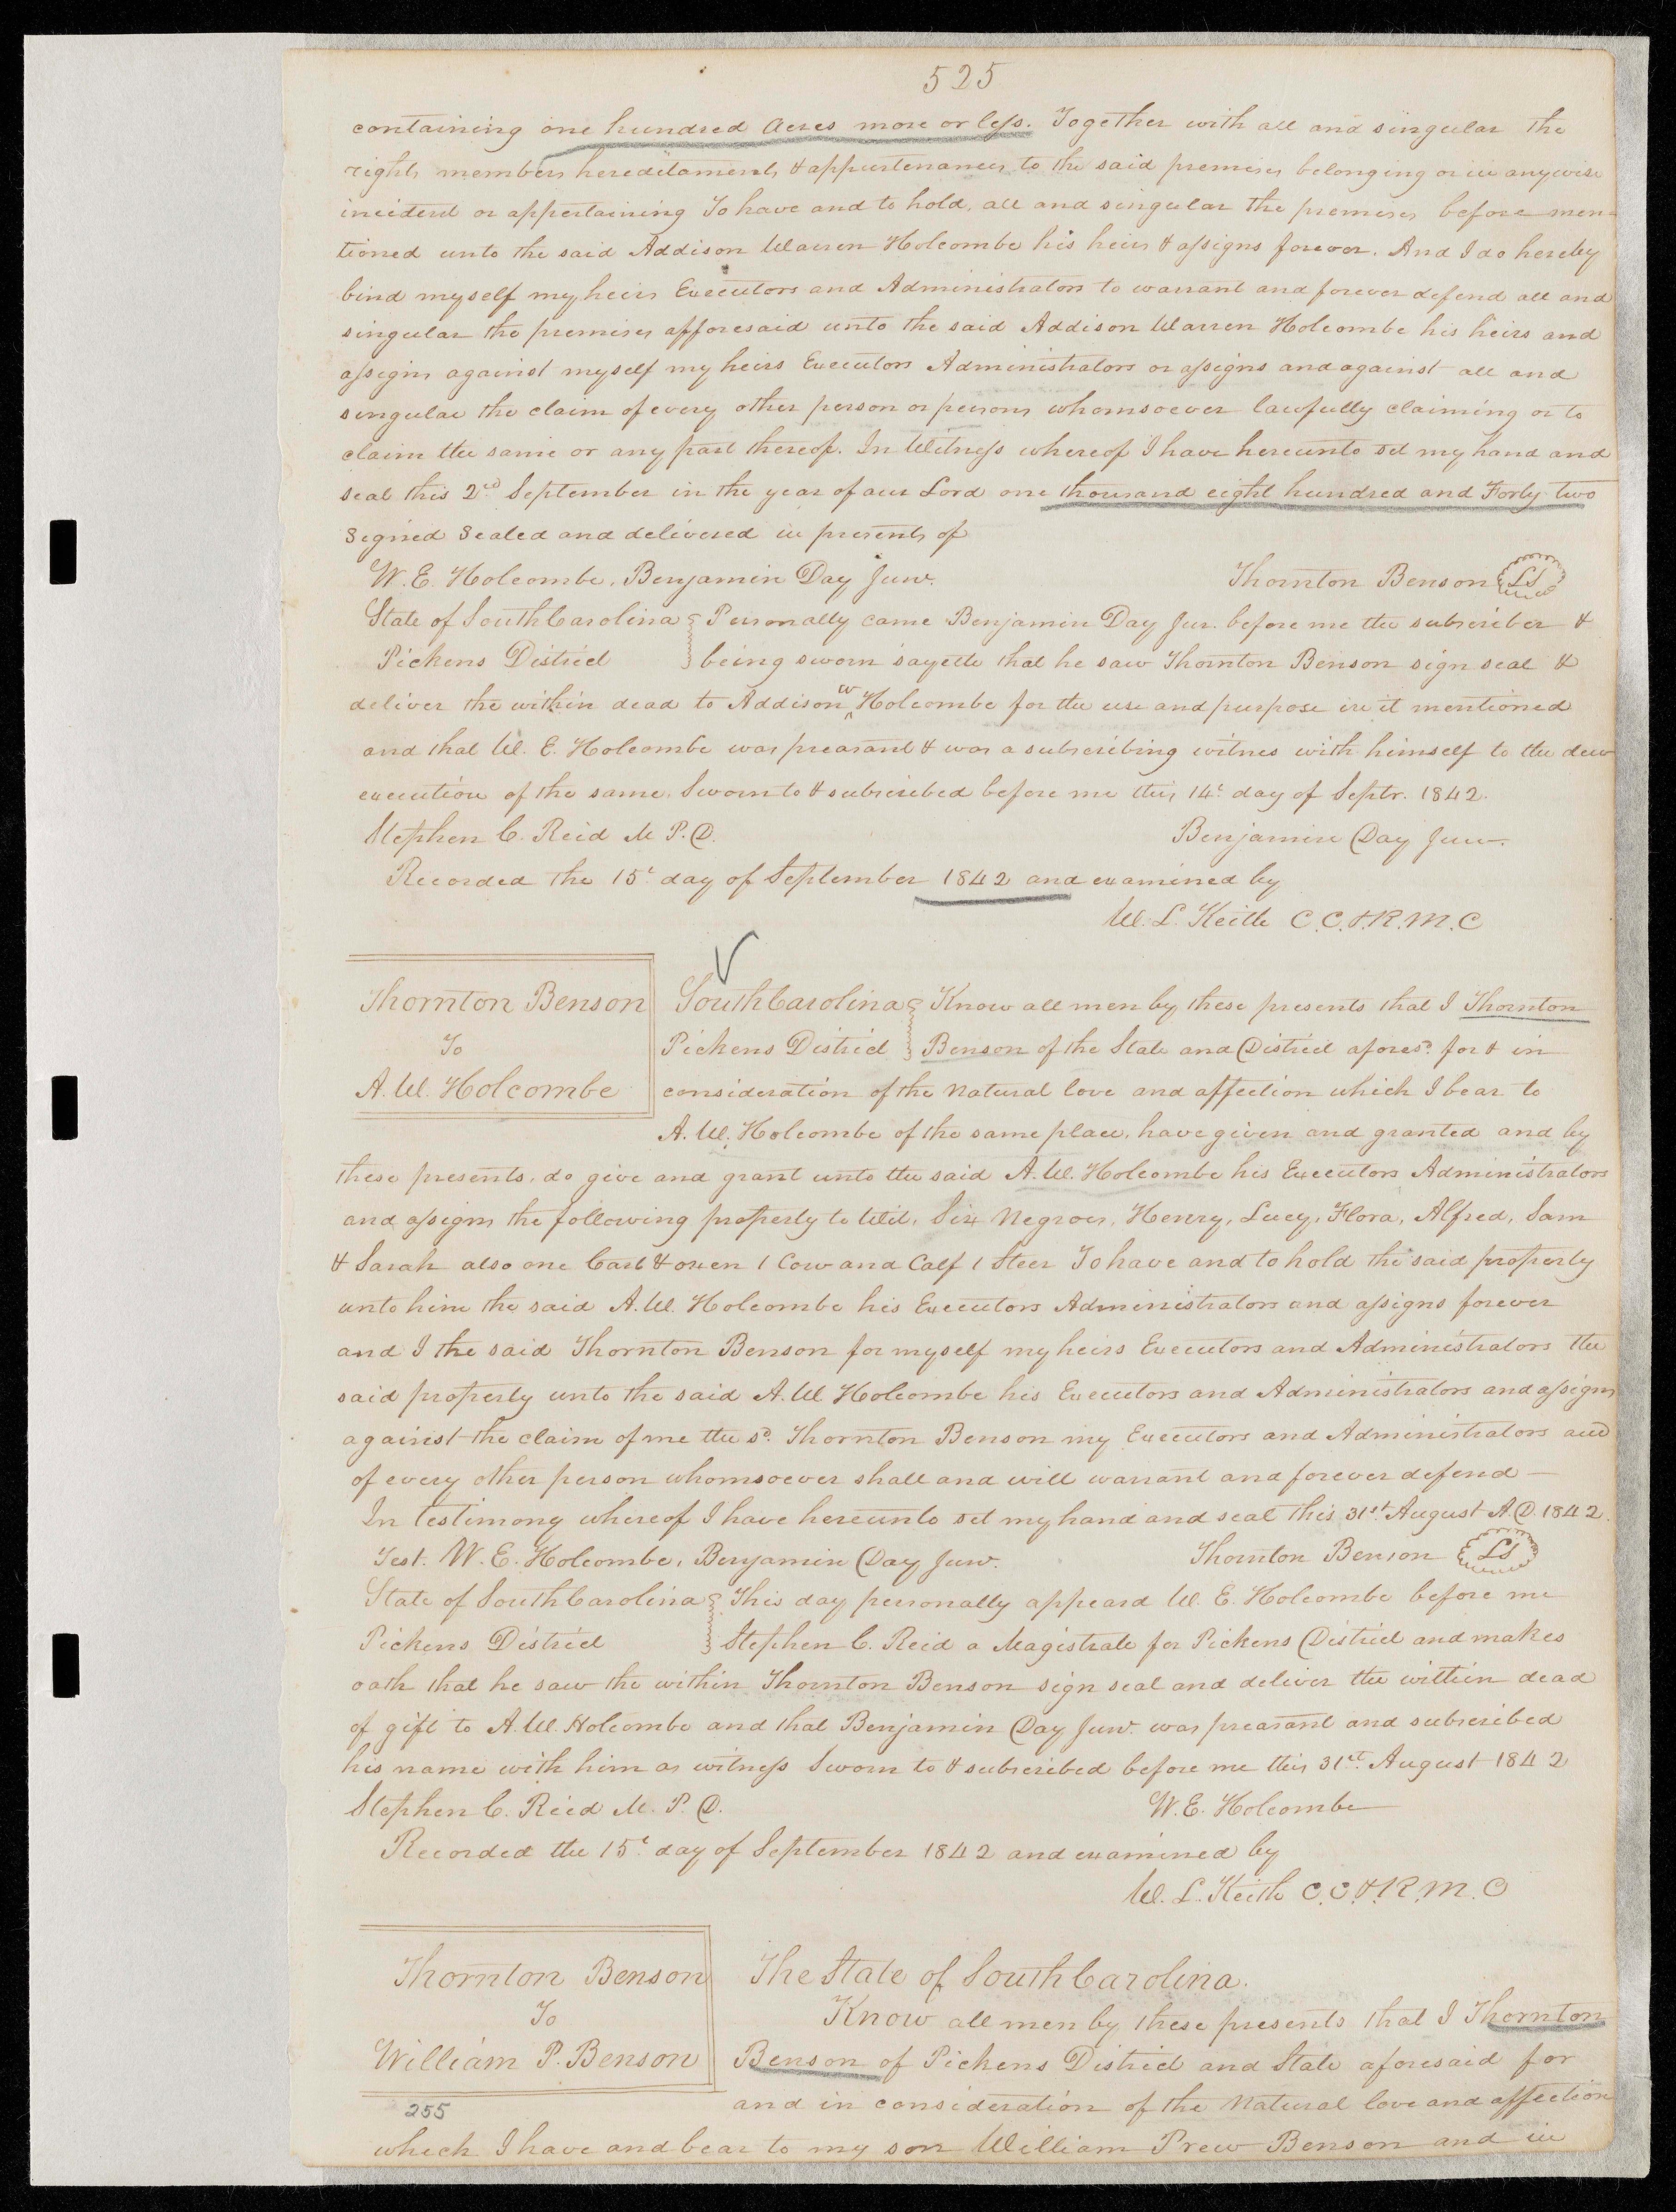 525
containing one hundred Acres more or less. Together with all and singular the
rights members hereditaments & appurtenances to the said premises belonging or in anywise
incident or appertaining To have and to hold, all and singular the premises before men-
tioned unto the said Addison Warren Holcombe his heirs & assigns forever. And I do hereby
bind myself my heirs Executors and Administrators to warrant and forever defend all and
singular the premises afforesaid unto the said Addison Warren Holcombe his heirs and
assigns against myself my heirs Executors Administrators or assigns and against all and
singular the claim of every other person or persons whomsoever lawfully claiming or to
claim the same or any part thereof. In Witness whereof I have hereunto set my hand and
seal this 2nd September in the year of our Lord one thousand eight hundred and Forty two
Signed Sealed and delivered in presents of
W. E. Holcombe, Benjamin Day Junr. Thornton Benson LS
State of South Carolina Personally came Benjamin Day Jur. before me the subscriber &
Pickens District being sworn sayeth that he saw Thornton Benson sign seal &
deliver the within dead to Addison W Holcombe for the use and purpose in it mentioned
and that W. E. Holcombe was preasant & was a subscribing witnes with himself to the dew
execution of the same. Sworn to & subscribed before me this 14t day of Septr. 1842.
Stephen C. Reid M. P. D. Benjamin Day Junr.
Recorded the 15t day of September 1842 and examined by
W. L. Keith C.C.&R.M.C
Thornton Benson South Carolina Know all men by these presents that I Thornton
To Pickens District Benson of the State and District aforesd. for & in
A. W. Holcombe consideration of the natural love and affection which I bear to
A. W. Holcombe of the same place, have given and granted and by
these presents, do give and grant unto the said A. W. Holcombe his Executors Administrators
and assigns the following property to Wit, Six Negroes, Henry, Lucy, Flora, Alfred, Sam
& Sarah also one Cart & oxen 1 Cow and Calf 1 Steer To have and to hold the said property
unto him the said A. W. Holcombe his Executors Administrators and assigns forever
and I the said Thornton Benson for myself my heirs Executors and Administrators the
said property unto the said A. W Holcombe his Executors and Administrators and assigns
against the claim of me the sd. Thornton Benson my Executors and Administrators and
of every other person whomsoever shall and will warrant and forever defend —
In testimony whereof I have hereunto set my hand and seal this 31st August A.D. 1842.
Test. W. E. Holcombe, Benjamin Day Junr. Thornton Benson LS
State of South Carolina This day personally appeard W. E. Holcombe before me
Pickens District Stephen C. Reid a Magistrate for Pickens District and makes
oath that he saw the within Thornton Benson sign seal and deliver the within dead
of gift to A. W. Holcombe and that Benjamin Day Junr. was preasant and subscribed
his name with him as witness Sworn to & subscribed before me this 31st August 1842
Stephen C. Reid M. P. D. W. E. Holcombe
Recorded the 15t day of September 1842 and examined by
W. L. Keith C.C.&R.M.C
Thornton Benson The State of South Carolina.
To Know all men by these presents that I Thornton
William P. Benson Benson of Pickens District and State aforesaid for
255 and in consideration of the natural love and affection
which I have and bear to my son William Prew Benson and in